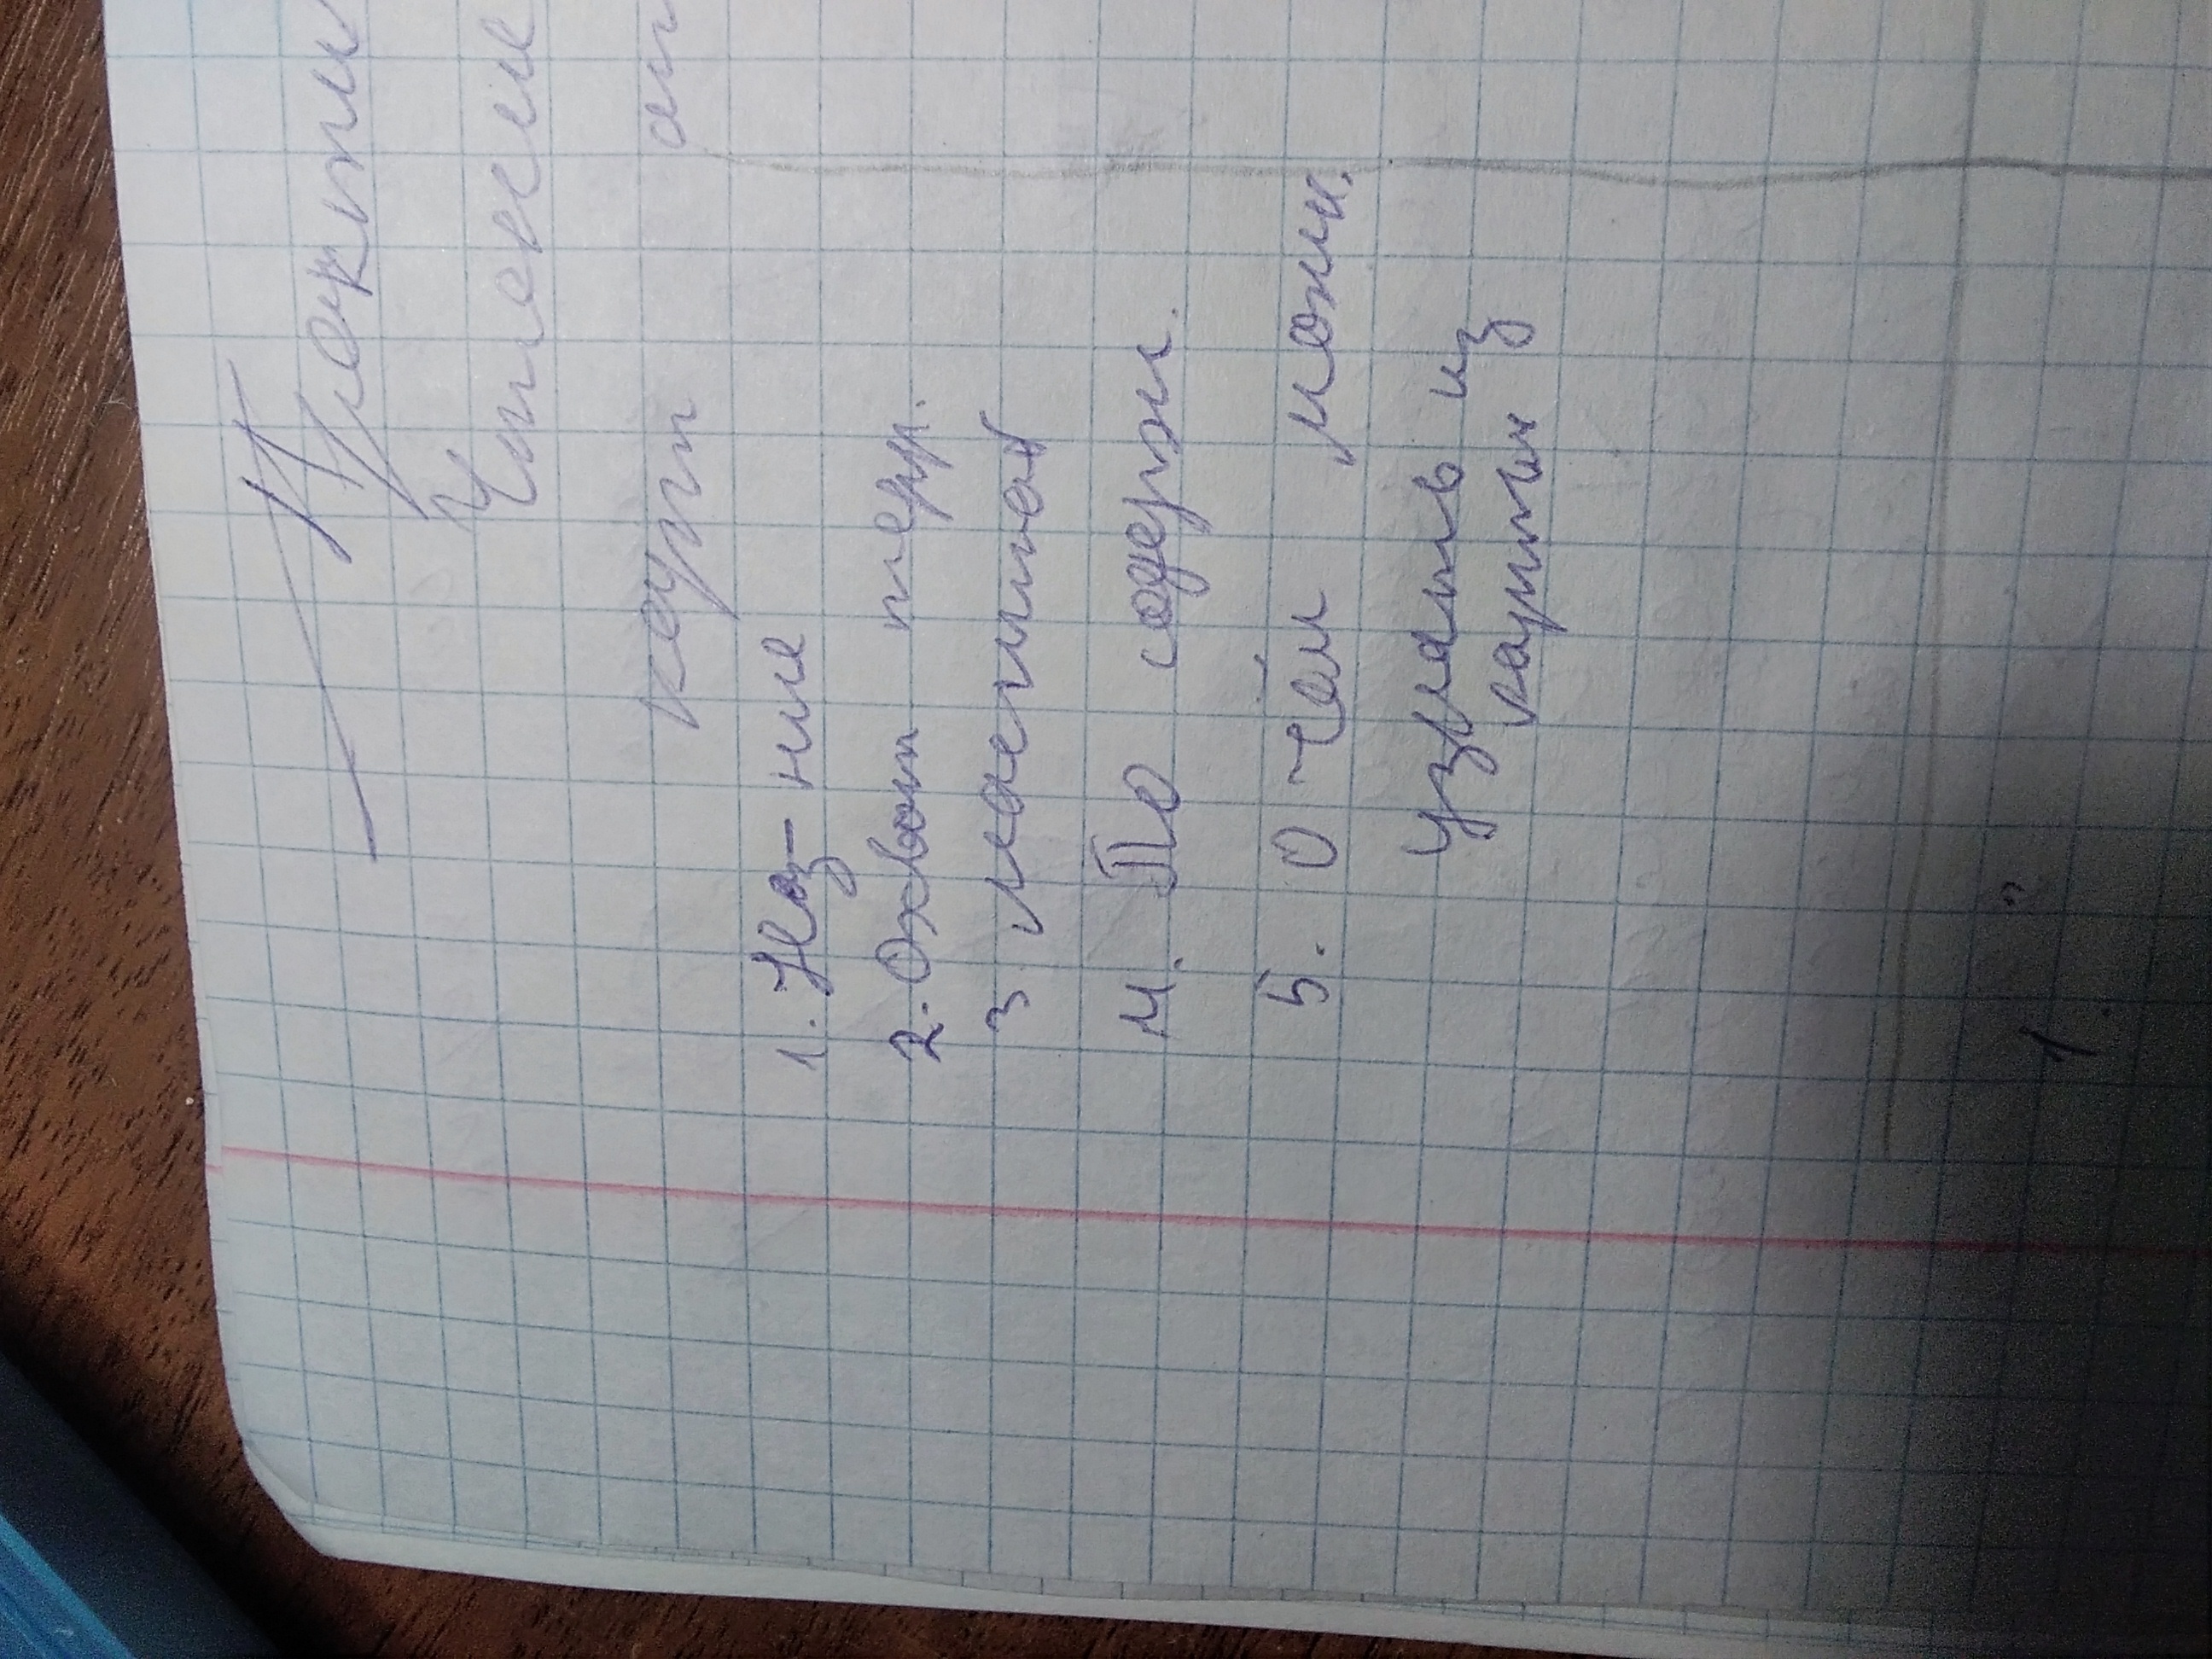 Практи
Чтение
карт ат
1. Наз-ние
2. Охват терр.
3 масштаб
4. По содерж.
5. О чём можн.
узнать из
карты
1.